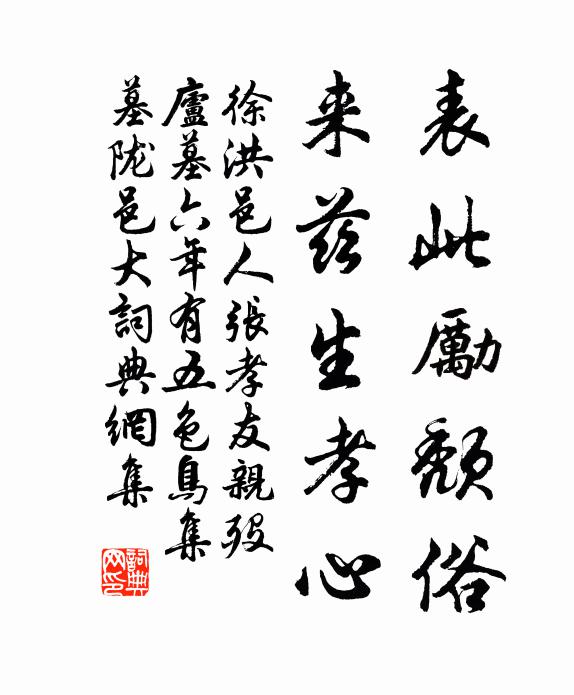 表此勵頹俗
来茲生孝心
徐洪邑人張孝友親歿
廬墓六年有五色鳥集
墓陇邑大詞典網集
詞典
网印